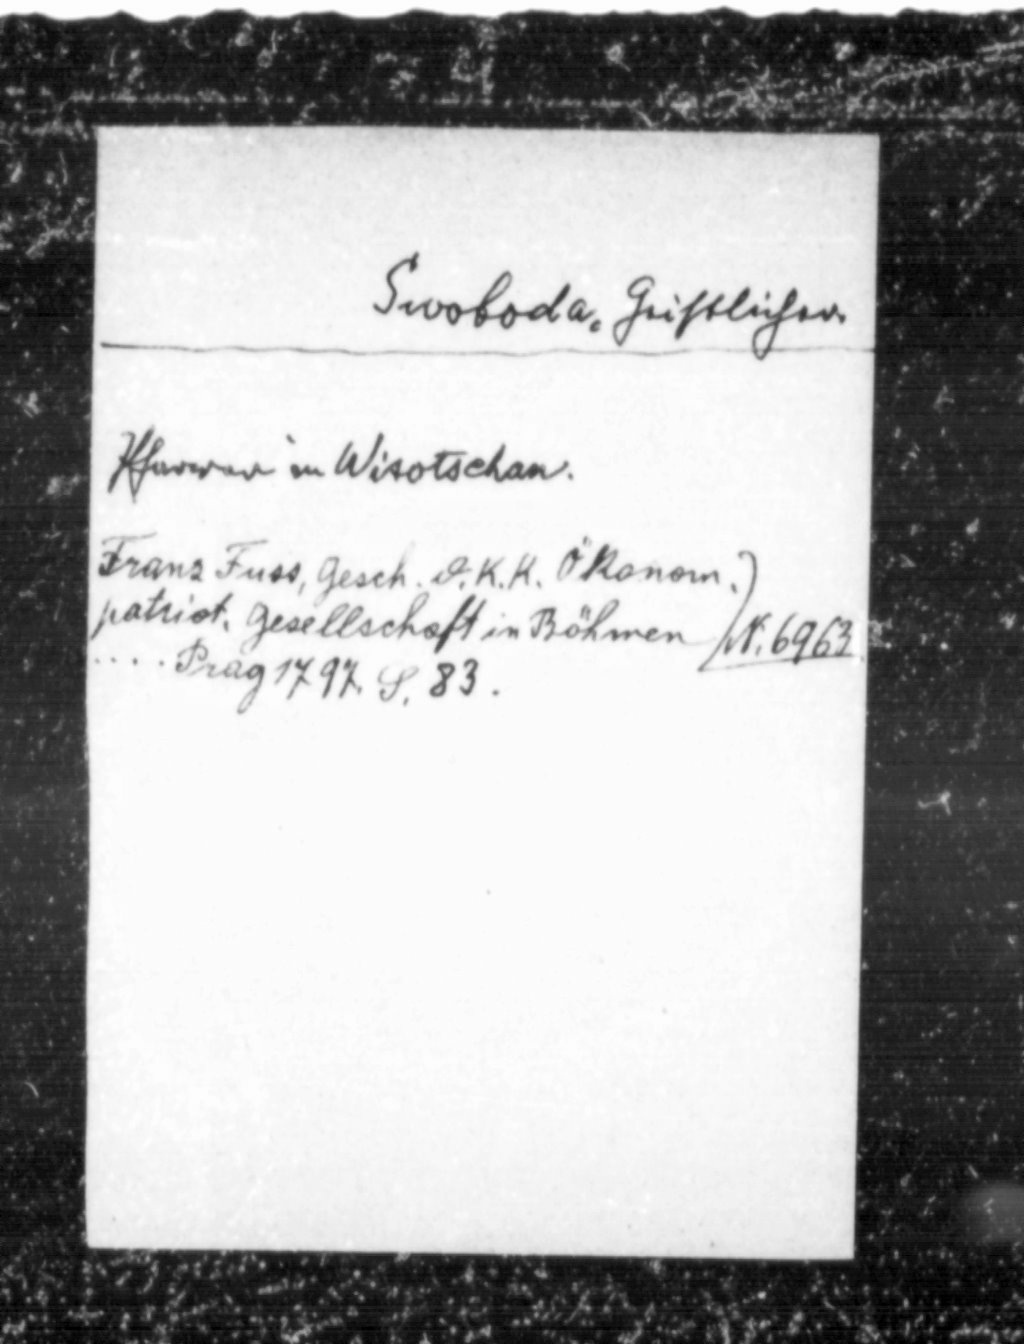 Swoboda, Geistlicher.
Pfarrer in Wisotschan.
Franz Fuss, Gesch. d. K. K. Ökonom.
patriot. Gesellschaft in Böhmen
N. 6963
.... Prag 1797. S. 83.